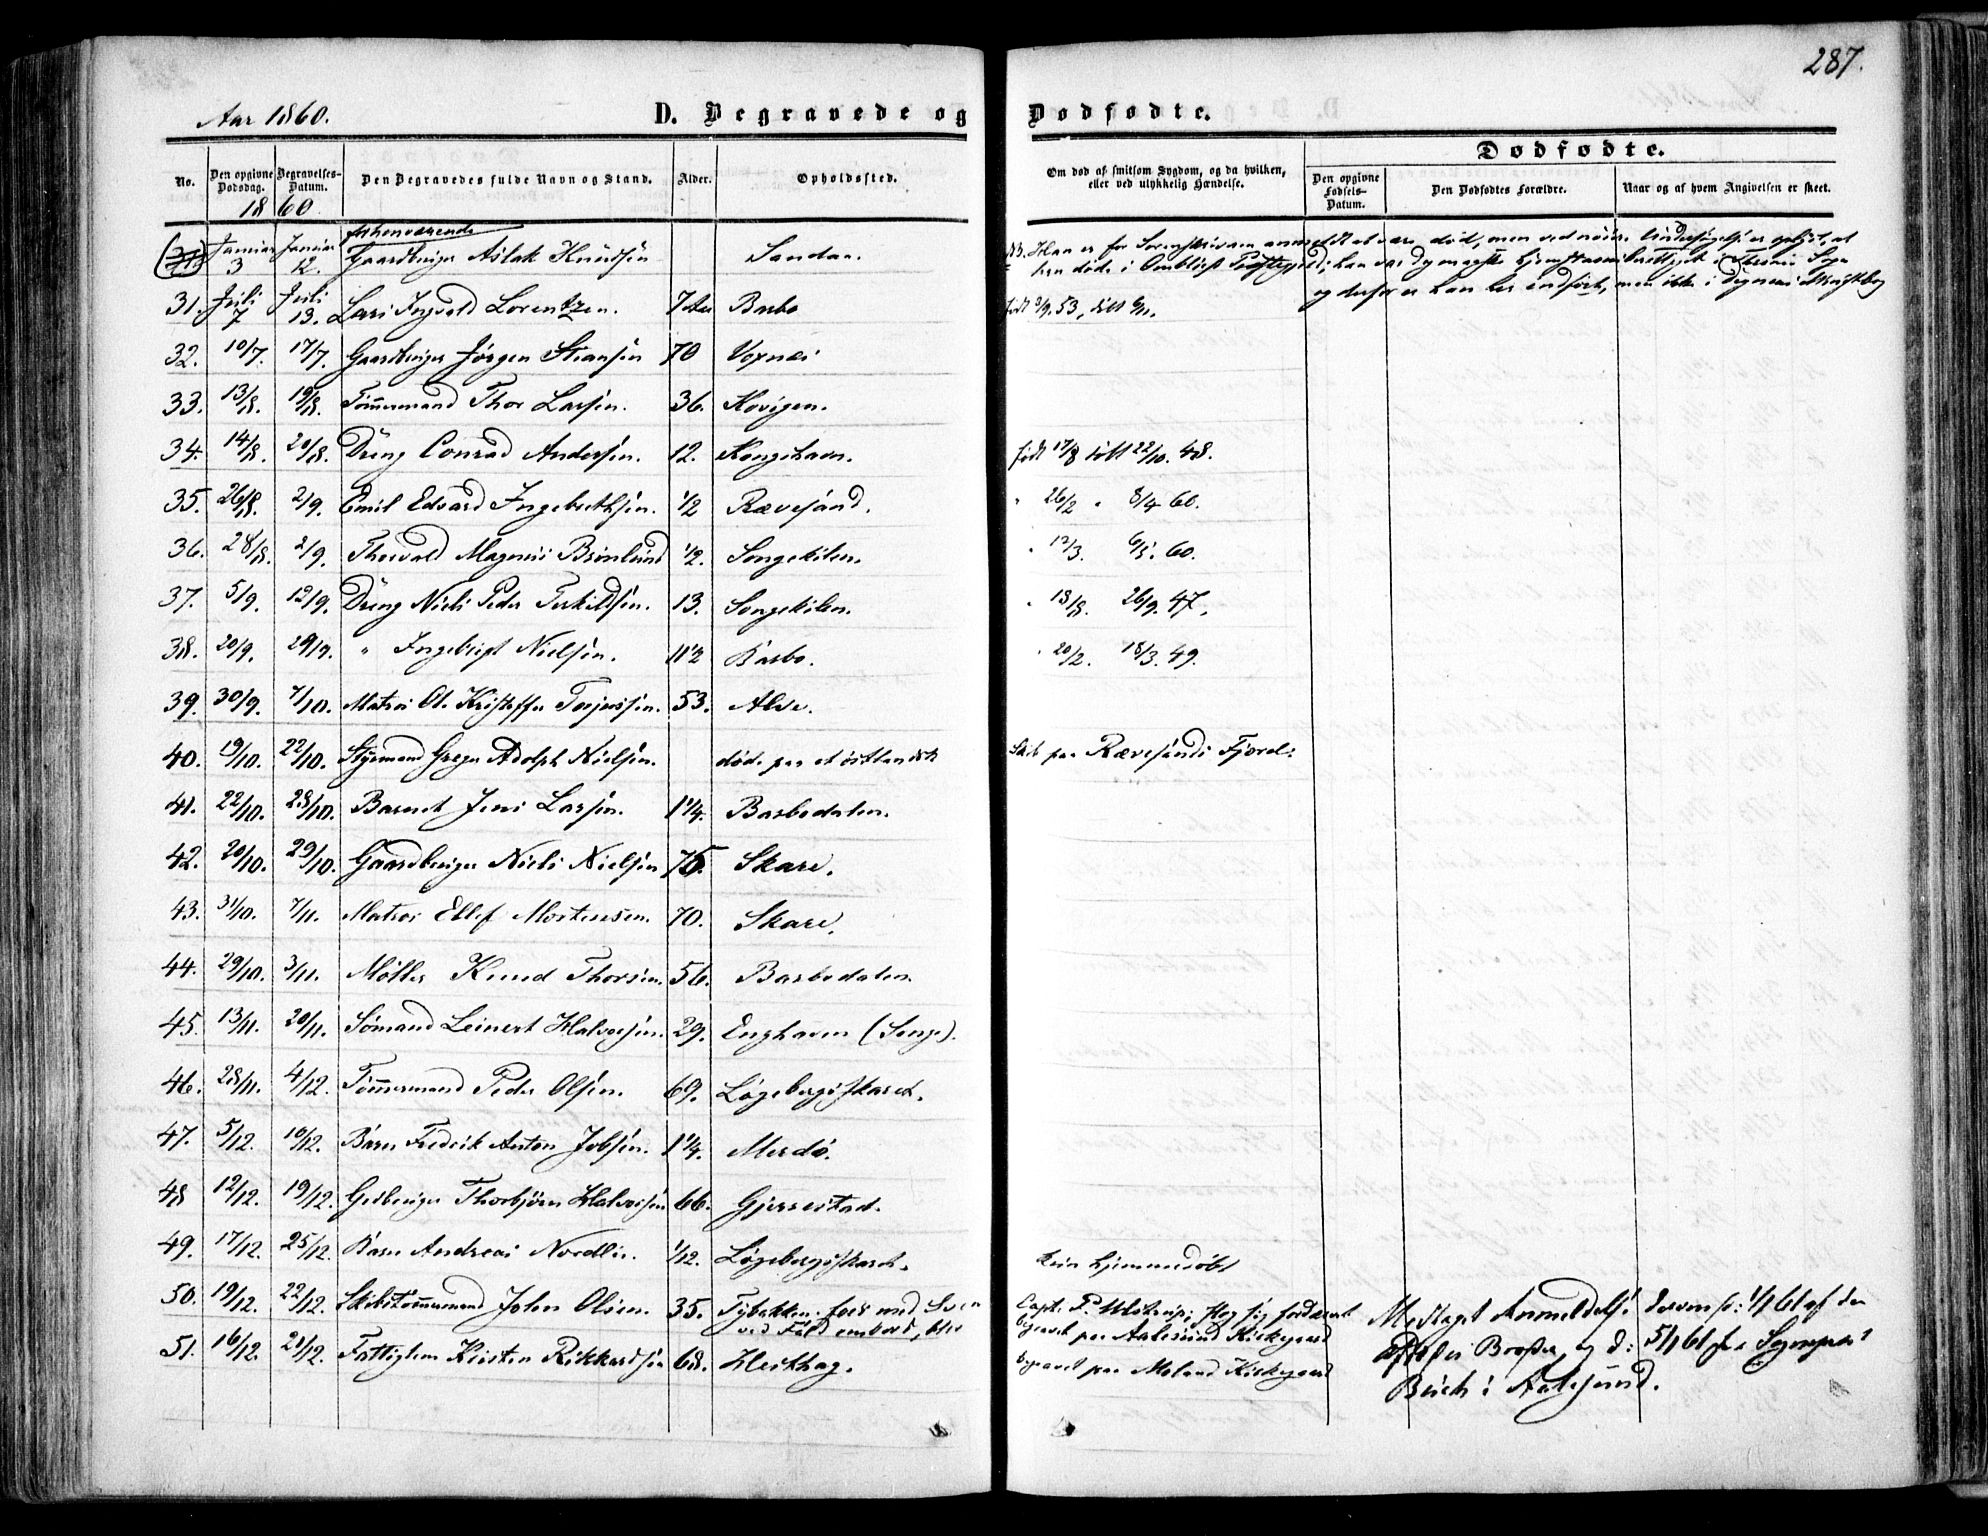 287.
Aar 1860. D. Begravede og Dødfødte.
No. Den opgivne Dødsdag. Begravelses-Datum. Den Begravedes fulde Navn og Stand. Alder. Opholdssted. Om død af smitsom Sygdom, og da hvilken, eller ved ulykkelig Hændelse. Dødfødte.
Den opgivne Fødsels-Datum. Den Dødfødtes Forældre. Naar og af hvem Angivelsen er skeet.
1860
forhenværende
Januar 3 Januar 12. Gaardbruger Aslak Knudsen Sandaa. NB. Han er for Sorenskriveren anmeldt at være død, men ved nøiere Undersøgelse er oplyst, at
han døde i Omblist Præstegjeld; han var dymeget hjemstavnsberettiget i Sogn
og derfor er han her indført, men ikke i
31. Juli 7 Juli 13. Lars Ingvald Lorentzen. 7 Aar Barbo født 9/9. 53, døbt 6/11.
32. 10/7. 17/7. Gaardbruger Jörgen Stiansen 70 Voxnæs
33. 13/8. 19/8. Tömmermand Thor Larsen. 36. Kovigen.
34. 14/8. 20/8. Dreng Conrad Andersen. 12. Kongshavn. født 17/8 døbt 22/10. 48.
35. 26/8. 2/9. Emil Edvard Ingebrethsen. 1/2 Rævesand. " 26/2 " 8/4 60.
36. 28/8. 2/9. Thorvald Magnus Brönlund 1/2. Songekilen. " 12/3. 6/5. 60.
37. 5/9. 12/9. Dreng Niels Peder Terkildsen. 13. Songekilen. " 18/8. 26/9. 47.
38. 20/9. 29/9. " Ingebrigt Nielsen. 11 1/2 Barbo. " 20/2. 18/3. 49.
39. 30/9. 7/10. Matros Ol. Kristoffer Torjussen. 53. Alve.
40. 19/10. 22/10. Styrmand Greger Adolph Nielsen. døde paa et östlandsk Skib paa Rævesands Fjord.
41. 22/10. 28/10. Barnet Jens Larsen. 1 1/4. Barbodalen.
42. 20/10. 29/10. Gaardbruger Niels Nielsen 75. Skare.
43. 31/10. 7/11. Matros Ellef Mortensen. 70. Skare.
44. 29/10. 3/11. Möller Knud Thorsen. 56. Barbodalen.
45. 13/11. 20/11. Sömand Leinert Halvorsen. 29. Enghaven (Songe).
46. 28/11. 4/12. Tömmermand Peder Olsen. 69. Lögebergsskaret.
47. 5/12. 10/12. Barn Fredrik Anton Jobsen. 1 1/4. Merdö.
48 12/12. 19/12. Grdbruger Thorbjörn Halvorsen 66. Gjerrestad.
49. 17/12. 25/12. Barn Andreas Nordli. 1/12. Lögebergsskaret. kun hjemmedöbt
50. 19/12. 22/12. Skibstömmermand John Olsen. 35. Tybakken. foer med Sven Capt. P. Ulstrup;
ved Fald ombord, blev begravet paa Aalesund Kirkegaard
51. 16/12. 21/12. Fattiglem Kirsten Rikkardsen 68. Heithag. begravet paa Moland Kirkegaard
Modtaget Anmeldelse derom fra 1/1 61 af den
Afdødes Broder, og d: 5/1 61 fra Sognepræst
Buch i Aalesund.